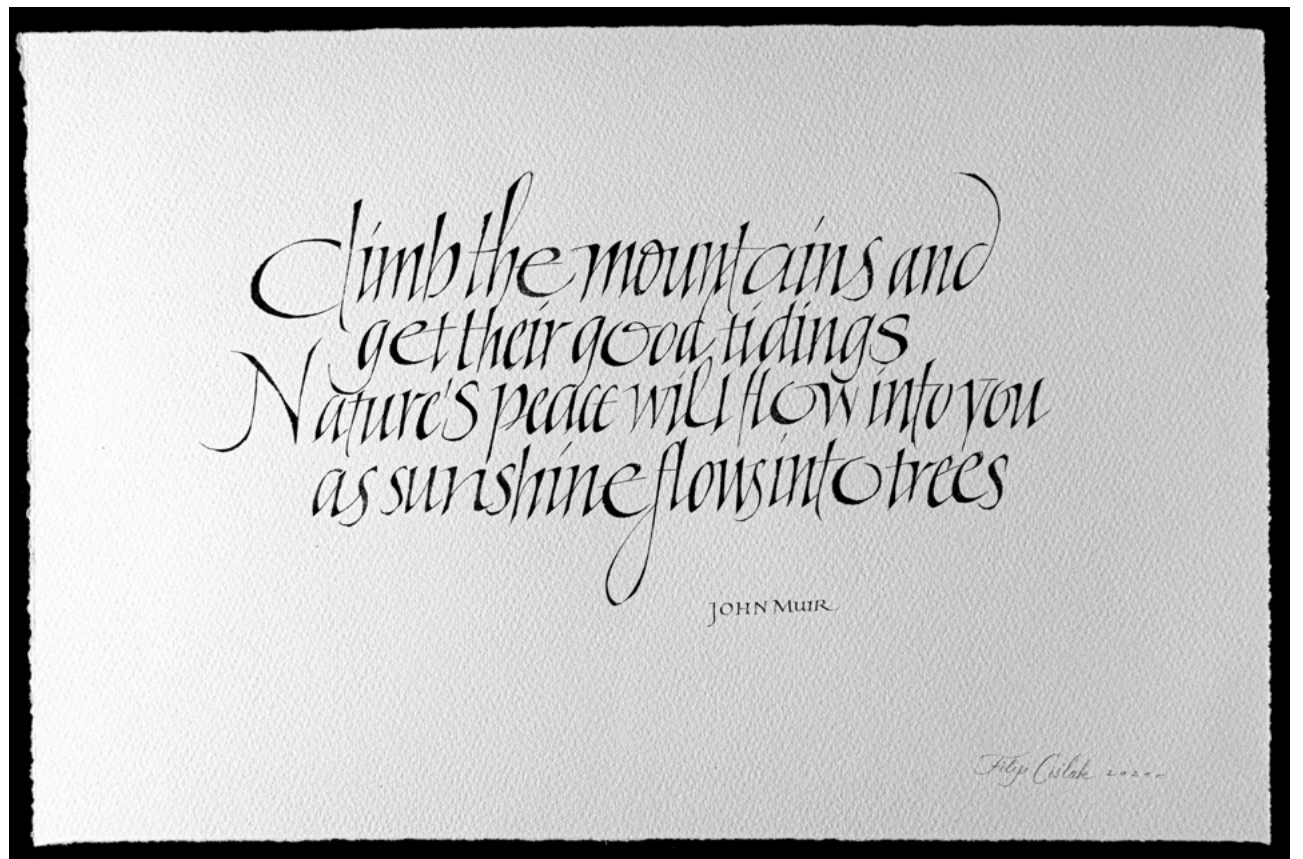 Climb the mountains and
get their good tidings
Nature's peace will flow into you
as sunshine flows into trees
JOHN MUIR
Filip Cislak 2020